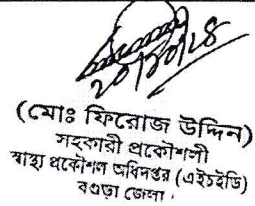 ২০/১০/২৪
(মোঃ ফিরোজ উদ্দিন)
সহকারী প্রকৌশলী
স্বাস্থ্য প্রকৌশল অধিদপ্তর (এইচইডি)
বগুড়া জেলা।